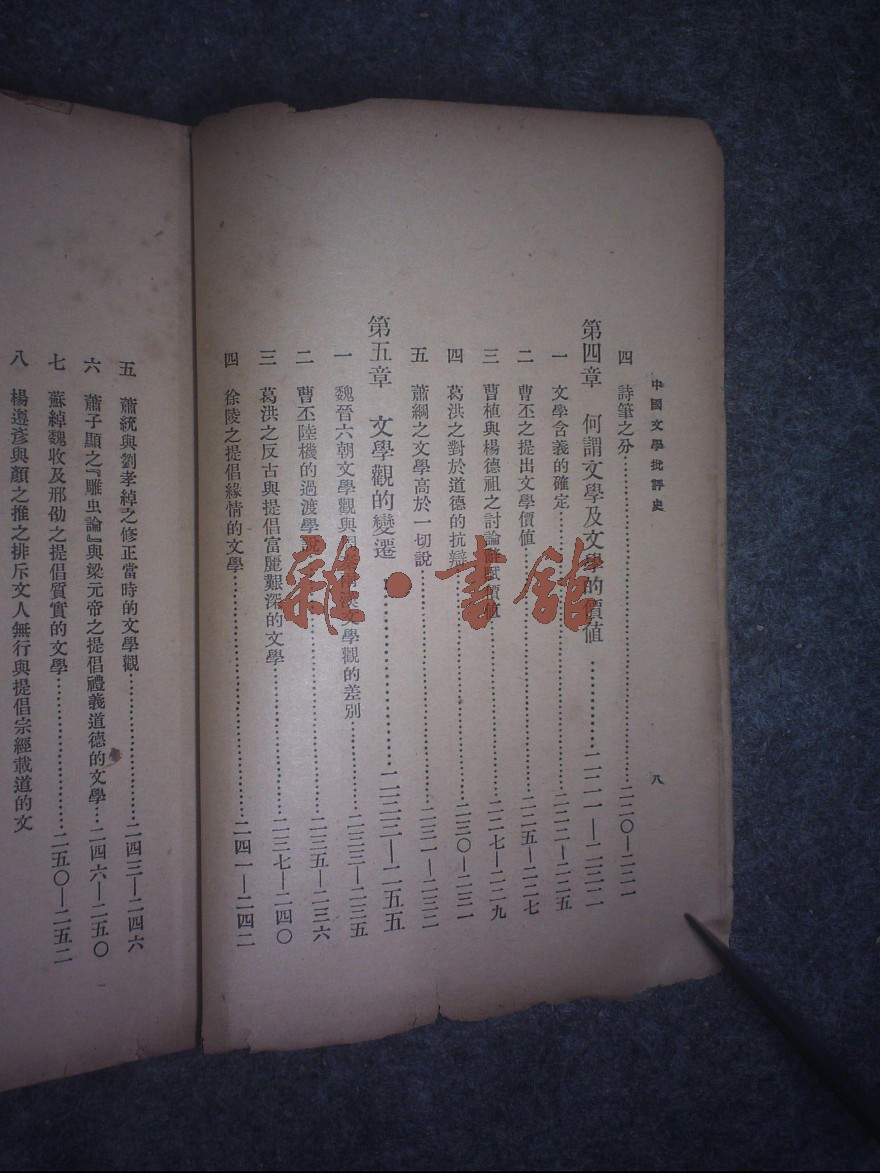 中國文學批評史
八
四 詩筆之分……二二〇—二二一
第四章 何謂文學及文學的價值……二二一—二三二
一 文學含義的確定……二二二—二二五
二 曹丕之提出文學價值……二二五—二二七
三 曹植與楊德祖之討論辭賦價值……二二七—二二九
四 葛洪之對於道德的抗辯……二三〇—二三一
五 蕭綱之文學高於一切說……二三一—二三二
第五章 文學觀的變遷……二三三—二五五
一 魏晉六朝文學觀與周秦兩漢文學觀的差別……二三三—二三五
二 曹丕陸機的過渡學說……二三五—二三六
三 葛洪之反古與提倡富麗艱深的文學……二三七—二四〇
四 徐陵之提倡緣情的文學……二四一—二四二
五 蕭統與劉孝綽之修正當時的文學觀……二四三—二四六
六 蕭子顯之『雕虫論』與梁元帝之提倡禮義道德的文學…二四六—二五〇
七 蘇綽魏收及邢劭之提倡質實的文學……二五〇—二五二
八 楊遵彥與顏之推之排斥文人無行與提倡宗經載道的文
雜·書館